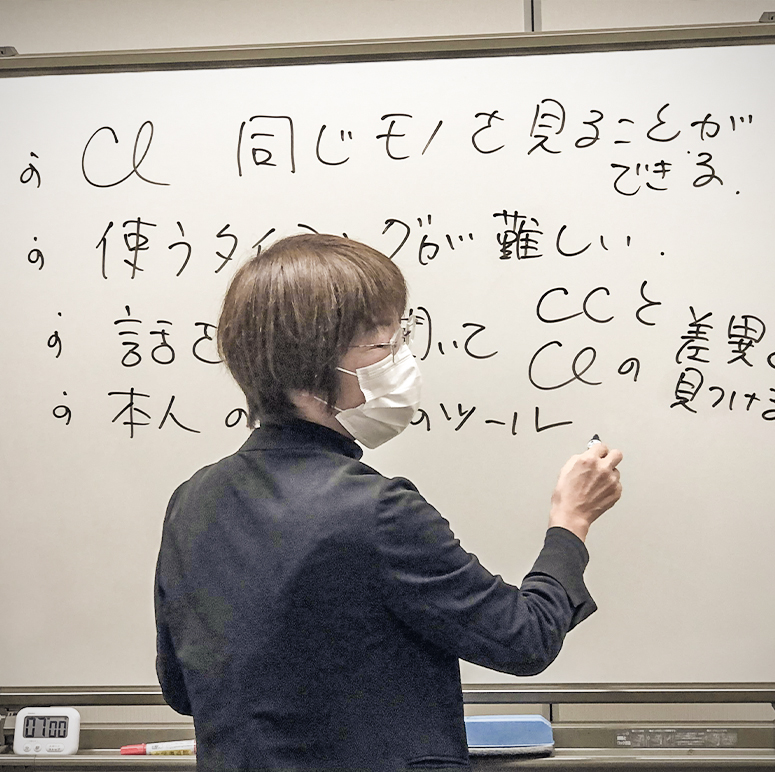 Cl 同じモノを見ることが
できる.
使うタイミングが難しい.
話を いて
CCと
Clの
差異
見つけ
本人の のツール
07:00